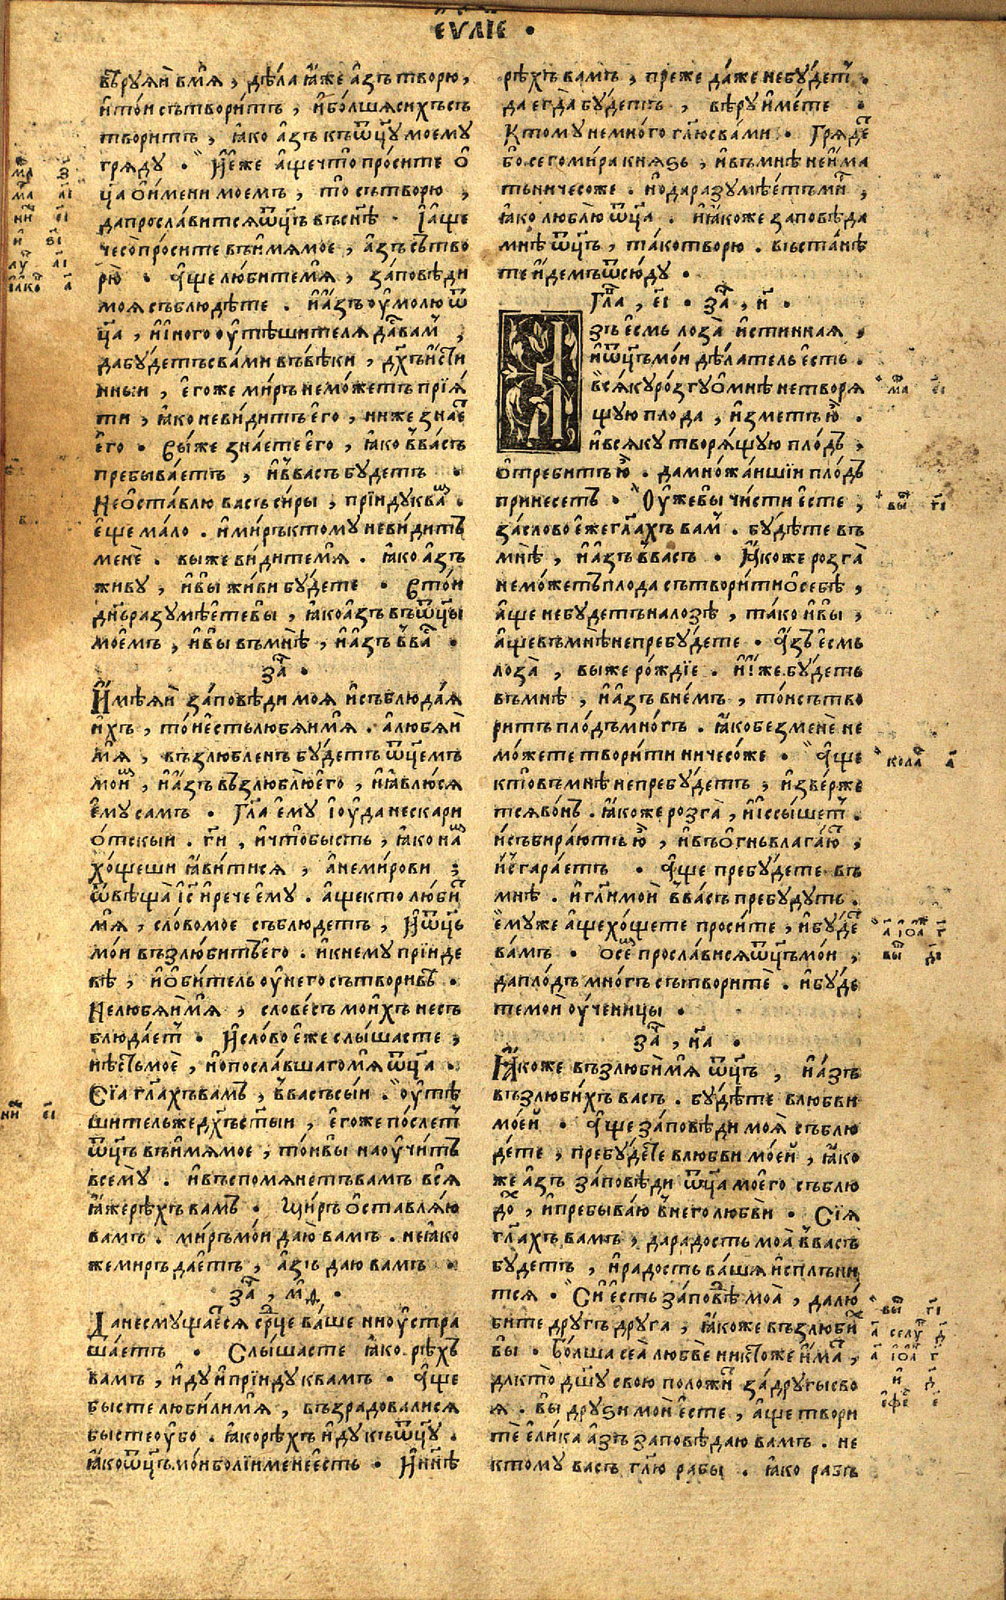 є҆ѵⷢ҇лїє •
вѣ́рꙋѧй в̾мѧ̀, дѣ́ла ꙗ҆́же а҆́зъ творю̀,
и҆то́и сътвори́тъ, и҆бо́лшаѧ си́хъ съ
твори́тъ, ꙗ҆ко а҆́зъ къѿц҃ꙋ моемꙋ
грѧдꙋ̀ • И҆́ еже а҆́ще что̀ про́сите ѿ
ц҃а ѻ҆и́мени моемъ, то̀ сътворю̀,
да просла́витсѧ ѿц҃ъ въ сн҃ѣ • І҆а҆́ще
чесо̀ про́сите въ и҆́мѧ мое, а҆зъ сътво
рю̀ • А҆́ще лю́бите мѧ̀, за́повѣди
моѧ̀ съблюдѣ́те . и҆ а҆́зъ ᲂу҆молю̀ ѿ
ц҃а, и҆ и҆́ного ᲂу҆тѣ́шителѧ да́стъ ва́мъ,
да бꙋ́детъ с ва́ми въ вѣ́ки, дх҃ъ и҆́сти
нныи, є҆гоже ми́ръ не мо́жетъ прїѧ́
ти, ꙗ҆ко не ви́дитъ є҆го̀, ни́же зна́етъ
є҆го̀ • Вы́же зна́ете є҆го̀, ꙗ҆ко в̾ва́съ
пребыва́етъ, и҆ в̾ва́съ бꙋ́детъ •
Не ѻ҆ста́влю васъ си́ры, прїидꙋ̀ к ва́мъ .
є҆ще ма́ло . и҆ ми́ръ к томꙋ не ви́дитъ
менѐ . вы́же ви́дите мѧ̀ . ꙗ҆ко а҆́зъ
живꙋ̀, и҆ вы̀ жи́ви бꙋ́дете • В то́и
дн҃ь разꙋмѣ́ете вы̀, ꙗ҆ко а҆́зъ въ ѿц҃ы
моемъ, и҆ вы̀ въ мнѣ̀, и҆ а҆́зъ в̾ва́съ •
заⷱ҇ •
И҆мѣѧй за́повѣди моѧ̀ и҆ съблюда́ѧ
и҆́хъ, то́и є҆сть любѧ́и мѧ̀ . а҆ любѧ́й
мѧ̀, възлю́бленъ бꙋ́детъ ѿц҃емъ
мои́мъ, и҆ а҆́зъ възлюблю̀ є҆го̀, и҆ ꙗ҆влю́сѧ
є҆мꙋ̀ са́мъ • Гл҃а є҆мꙋ̀ і҆ю́да не скари
ѻ҆тскыи . гⷭ҇и, и҆ что̀ бы́сть, ꙗ҆ко на́мъ
хо́щеши ꙗ҆ви́тисѧ, а҆ не ми́рови ;
ѿвѣща̀ і҆с҃ и҆ рече є҆мꙋ̀ . а҆́ще кто̀ лю́битъ
мѧ̀, сло́во мое съблюде́тъ, и҆ ѿц҃ъ
мо́и възлю́битъ є҆го̀ . и҆ к немꙋ̀ прїи́де
вѣ, и҆ ѻ҆би́тель ᲂу҆ него̀ сътвори́вѣ .
Не любѧ́и мѧ̀, словесъ мои́хъ не съ
блюда́етъ • И҆ сло́во є҆́же слы́шасте,
нѣ́сть моѐ, и҆ посла́вшаго мѧ̀ ѿц҃а .
Сїѧ̀ гл҃ахъ ва́мъ, в̾ва́съ сы́и . ᲂу҆тѣ́
шитель же дх҃ъ ст҃ыи, є҆го́же по́слетъ
ѿц҃ъ въ и҆́мѧ мое, то́и вы наᲂу҆чи́тъ
всемꙋ̀ . и҆ въспомѧне́тъ ва́мъ всѧ̀
ꙗ҆же рѣ́хъ ва́мъ • Ми́ръ ѻ҆ставлѧ́ю
ва́мъ . ми́ръ мо́и даю̀ ва́мъ . не ꙗ҆ко
же ми́ръ дае́тъ, а҆́зъ даю̀ ва́мъ •
заⷱ҇, м҃д •
Да не смꙋща́етсѧ ср҃це ва́ше ни ᲂу҆стра
ша́етъ • Слы́шасте ꙗ҆ко рѣ́хъ
ва́мъ, и҆дꙋ̀ и҆ прїидꙋ̀ к ва́мъ • А҆́ще
бы́сте люби́ли мѧ̀, възра́довалисѧ
бы́сте ᲂу҆бо . ꙗ҆ко рѣ́хъ и҆дꙋ̀ къ ѿц҃ꙋ .
ꙗ҆ко ѿц҃ъ мо́и бо́лїи мене є҆сть • И҆ нн҃ѣ
рѣ́хъ ва́мъ, пре́же да́же не бꙋ́детъ .
да є҆гда̀ бꙋ́детъ, вѣ́рꙋ и҆́мете •
К томꙋ не мно́го гл҃ю с ва́ми • Грѧде́тъ
бо сего̀ ми́ра кнѧ́ѕь, и҆ въ мнѣ̀ не и҆́ма
ть ничесо́же . но̀ да разꙋмѣ́етъ ми́ръ,
ꙗ҆ко люблю̀ ѿц҃а . и҆ ꙗ҆́коже заповѣ́да
мнѣ̀ ѿц҃ъ, та́ко творю̀ . въста́нѣ
те и҆́демъ ѿсю́дꙋ •
Гла҃, є҃і • заⷱ҇, н҃ •
А҆зъ є҆́смь лоза̀ и҆́стиннаѧ,
и҆ ѿц҃ъ мо́и дѣ́латель є҆сть .
всѧ́кꙋ ро́згꙋ ѻ҆ мнѣ̀ не творѧ́
щꙋю плода̀, и҆́зметъ ю҆̀ .
и҆ всѧ́кꙋ творѧ́щꙋю пло́дъ,
ѻ҆треби́тъ ю҆̀ . да мно́жаишїи пло́дъ
принесе́тъ • Оу҆же вы̀ чи́сти є҆сте,
за сло́во є҆́же гл҃ахъ ва́мъ . бꙋ́дѣте въ
мнѣ̀, и҆ а҆́зъ в̾ва́съ • Ꙗ҆́коже розга̀
не мо́жетъ плода̀ сътвори́ти ѻ҆ себѣ̀,
а҆́ще не бꙋ́детъ на лозѣ̀, та́ко и҆ вы̀,
а҆́ще въ мнѣ̀ не пребꙋ́дете • А҆́зъ є҆смь
лоза̀, вы́же ро́ждїе . и҆́ же бꙋ́детъ
въ мнѣ̀, и҆ а҆́зъ в не́мъ, то́и сътво
ри́тъ пло́дъ мно́гъ . ꙗ҆́ко без менѐ не
мо́жете твори́ти ничесо́же • А҆́ще
кто̀ въ мнѣ̀ не пребꙋ́детъ, и҆зве́рже
тсѧ во́нъ . ꙗ҆́коже розга̀, и҆ і҆́ссышетъ .
и҆ събира́ютъ ю҆̀, и҆ въ ѻ҆́гнь влага́ютъ,
и҆ сгара́етъ • А҆́ще пребꙋ́дете въ
мнѣ̀ . и҆ гл҃и моѝ в̾ва́съ пребꙋ́дꙋтъ .
є҆мꙋ́же а҆́ще хо́щете проси́те, и҆ бꙋ́детъ
ва́мъ • ѻ҆ се́мъ просла́висѧ ѿц҃ъ мо́и,
да пло́дъ мно́гъ сътворитѐ . и҆ бꙋ́де
те моѝ ᲂу҆ченицы̀ •
заⷱ҇, н҃а •
Ꙗ҆́коже възлюби́ мѧ̀ ѿц҃ъ, и҆ а҆́зъ
възлюби́хъ ва́съ . бꙋ́дѣте в любвѝ
мое́й • А҆́ще за́повѣди моѧ̀ съблю
де́те, пребꙋ́дете в любвѝ мое́й, ꙗ҆́ко
же а҆́зъ за́повѣди ѿц҃а моего̀ съблю
до́хъ, и҆ пребыва́ю в него̀ любвѝ • Сїѧ̀
гл҃ахъ ва́мъ, да ра́дость моа̀ в̾ва́съ
бꙋ́детъ, и҆ ра́дость ва́ша и҆спл́ъни
тсѧ • Сѝ є҆сть за́повѣдь моа̀, да лю́
бите дрꙋ́гъ дрꙋ́га, ꙗ҆́коже възлюби́хъ
вы̀ • Бо́лша сеа̀ любвѐ никто́же и҆́мать,
да кто̀ дш҃ꙋ свою̀ положи́тъ за́ дрꙋгы сво
ѧ̀ . вы̀ дрꙋ́ѕи моѝ є҆́сте, а҆́ще твори
тѐ є҆ли́ка а҆́зъ заповѣ́даю ва́мъ . не
к томꙋ ва́съ гл҃ю рабы̀ . ꙗ҆́ко ра́бъ